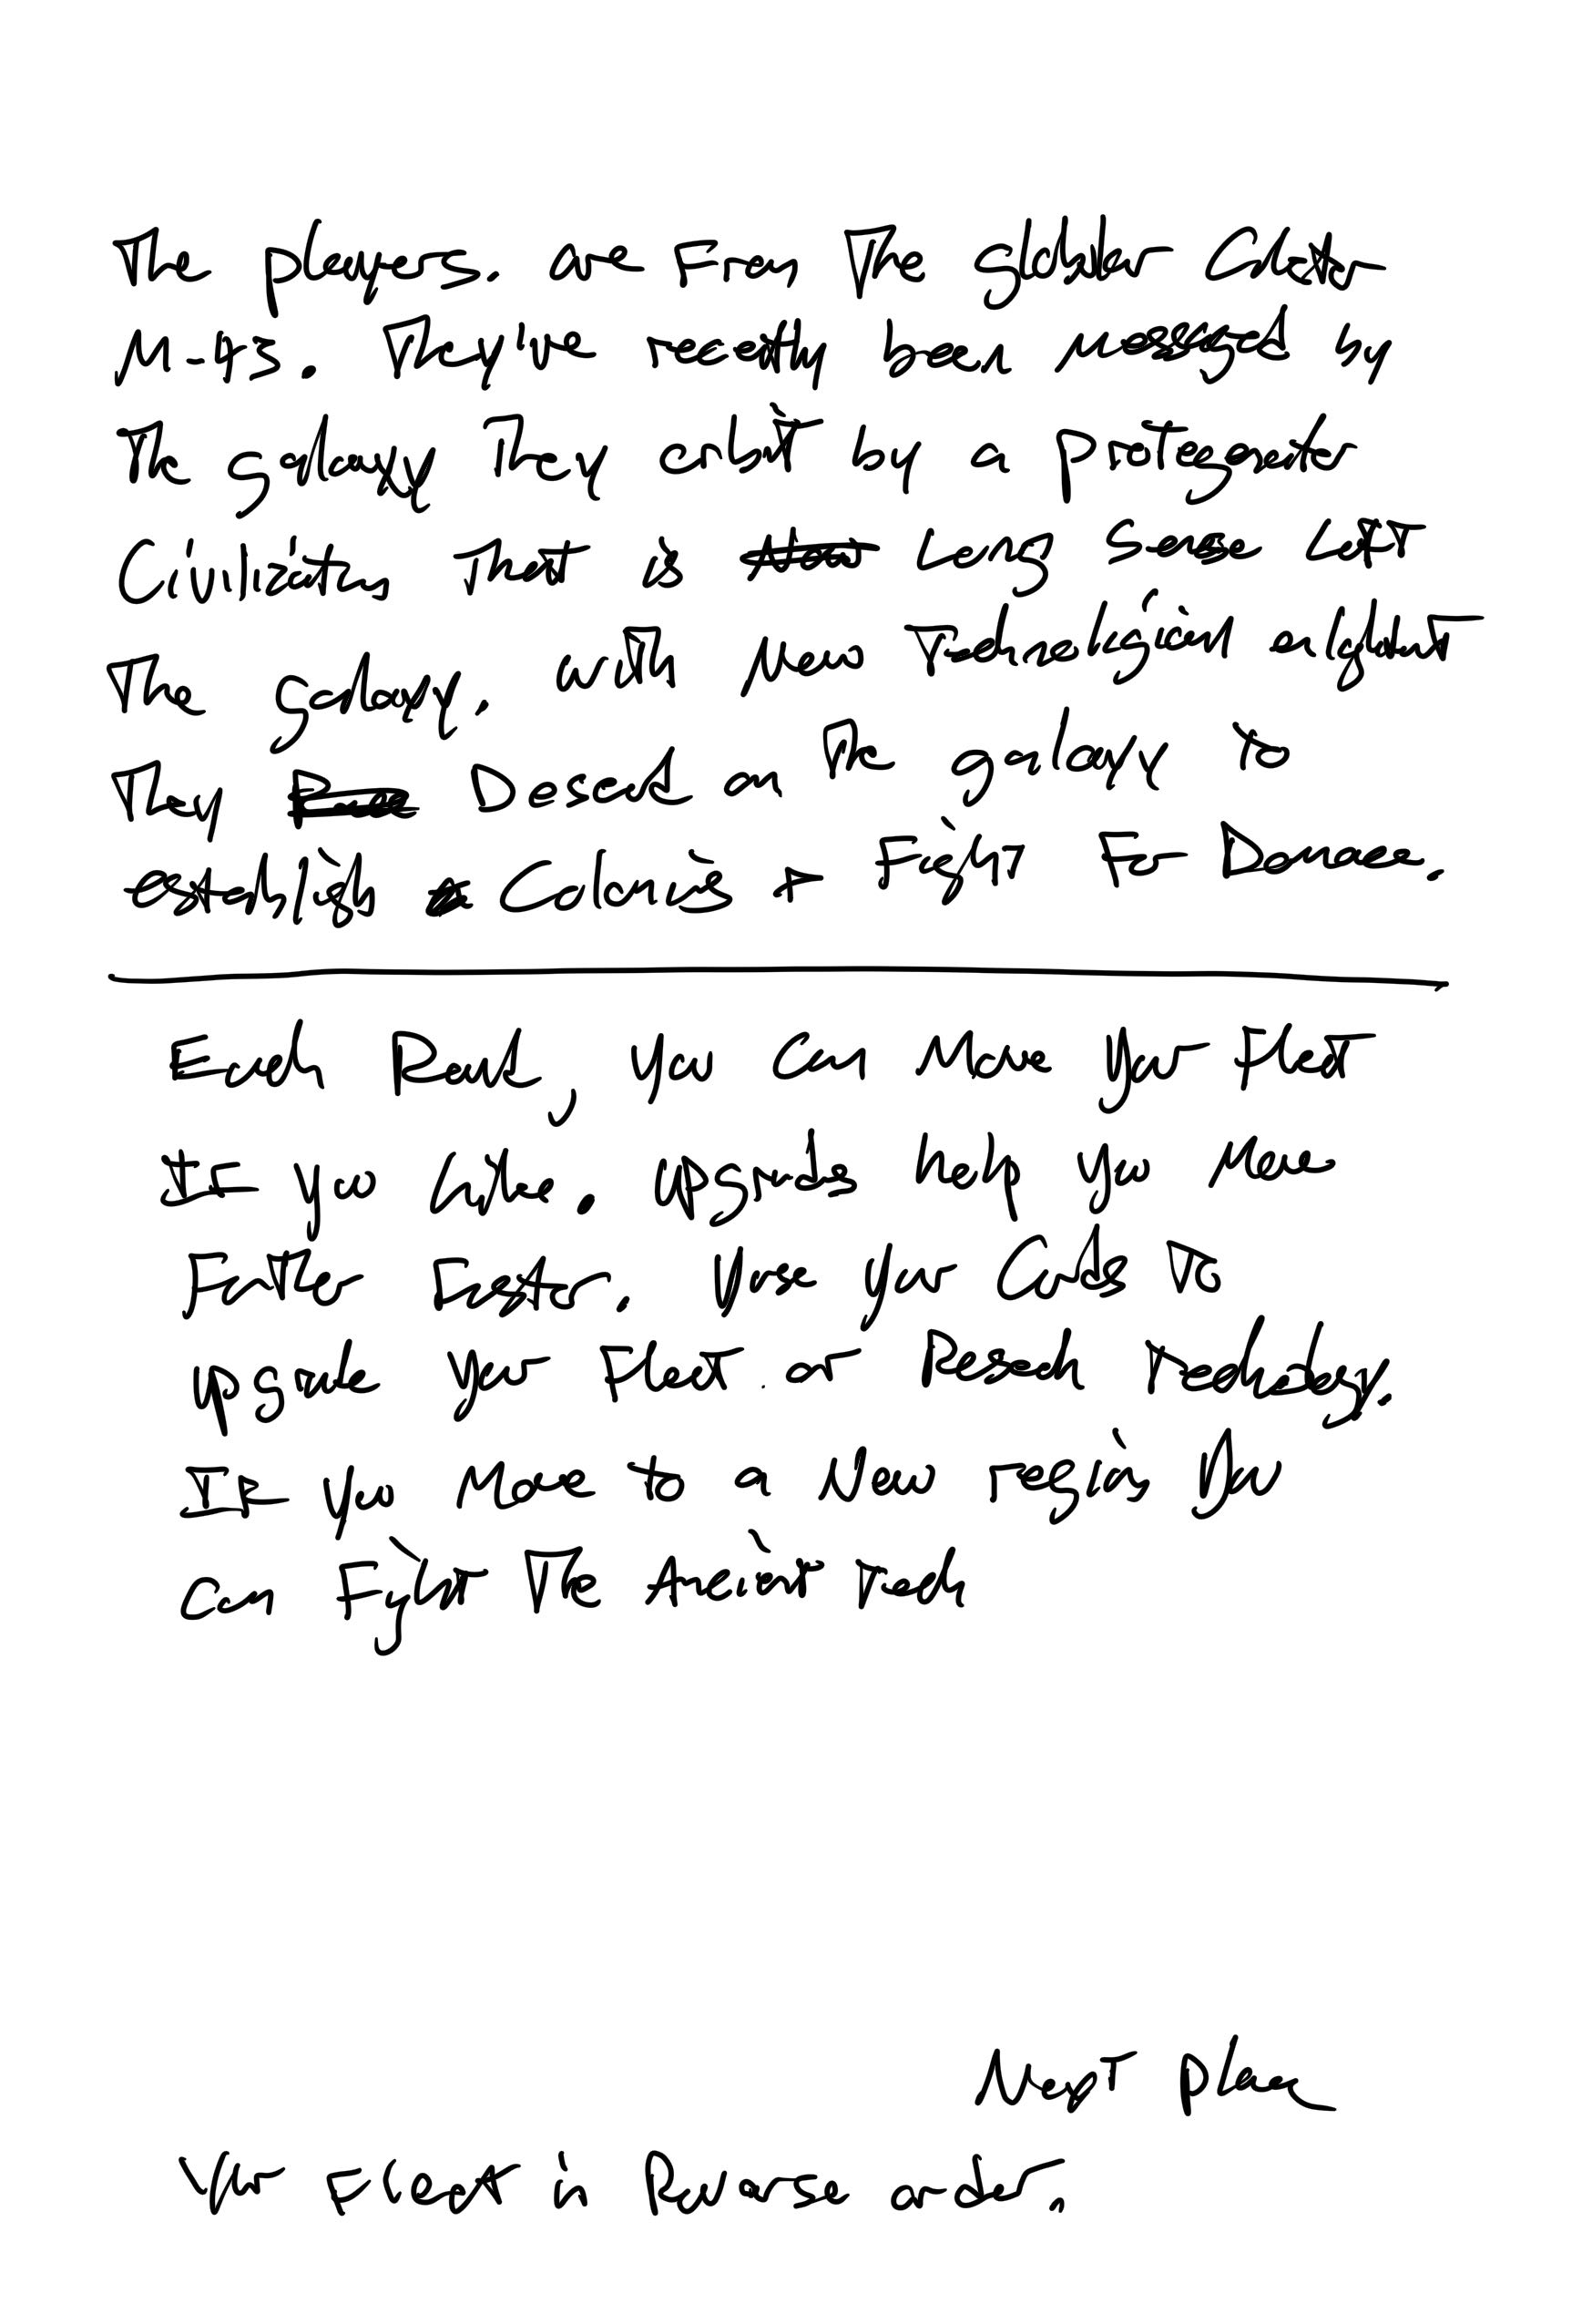 The players. are From The globular Cluster
M-43. They've recently been messaged by
The galaxy They orbit by a protogenitor
Civilization That is Long Sense Left
The galaxy. with New Technologies in
They Descend on The galaxy to
establish Colonies + Fight For Dominance.
Each Round, you can Move Your Fleet
IF you like. Upgrades help you Move
Further Faster. Use your Cards To
upgrade your Fleet or Research Technology.
IF you Move to a New region You
can Fight The Ancient Tech
Next place
Your Fleet in Reverse order.